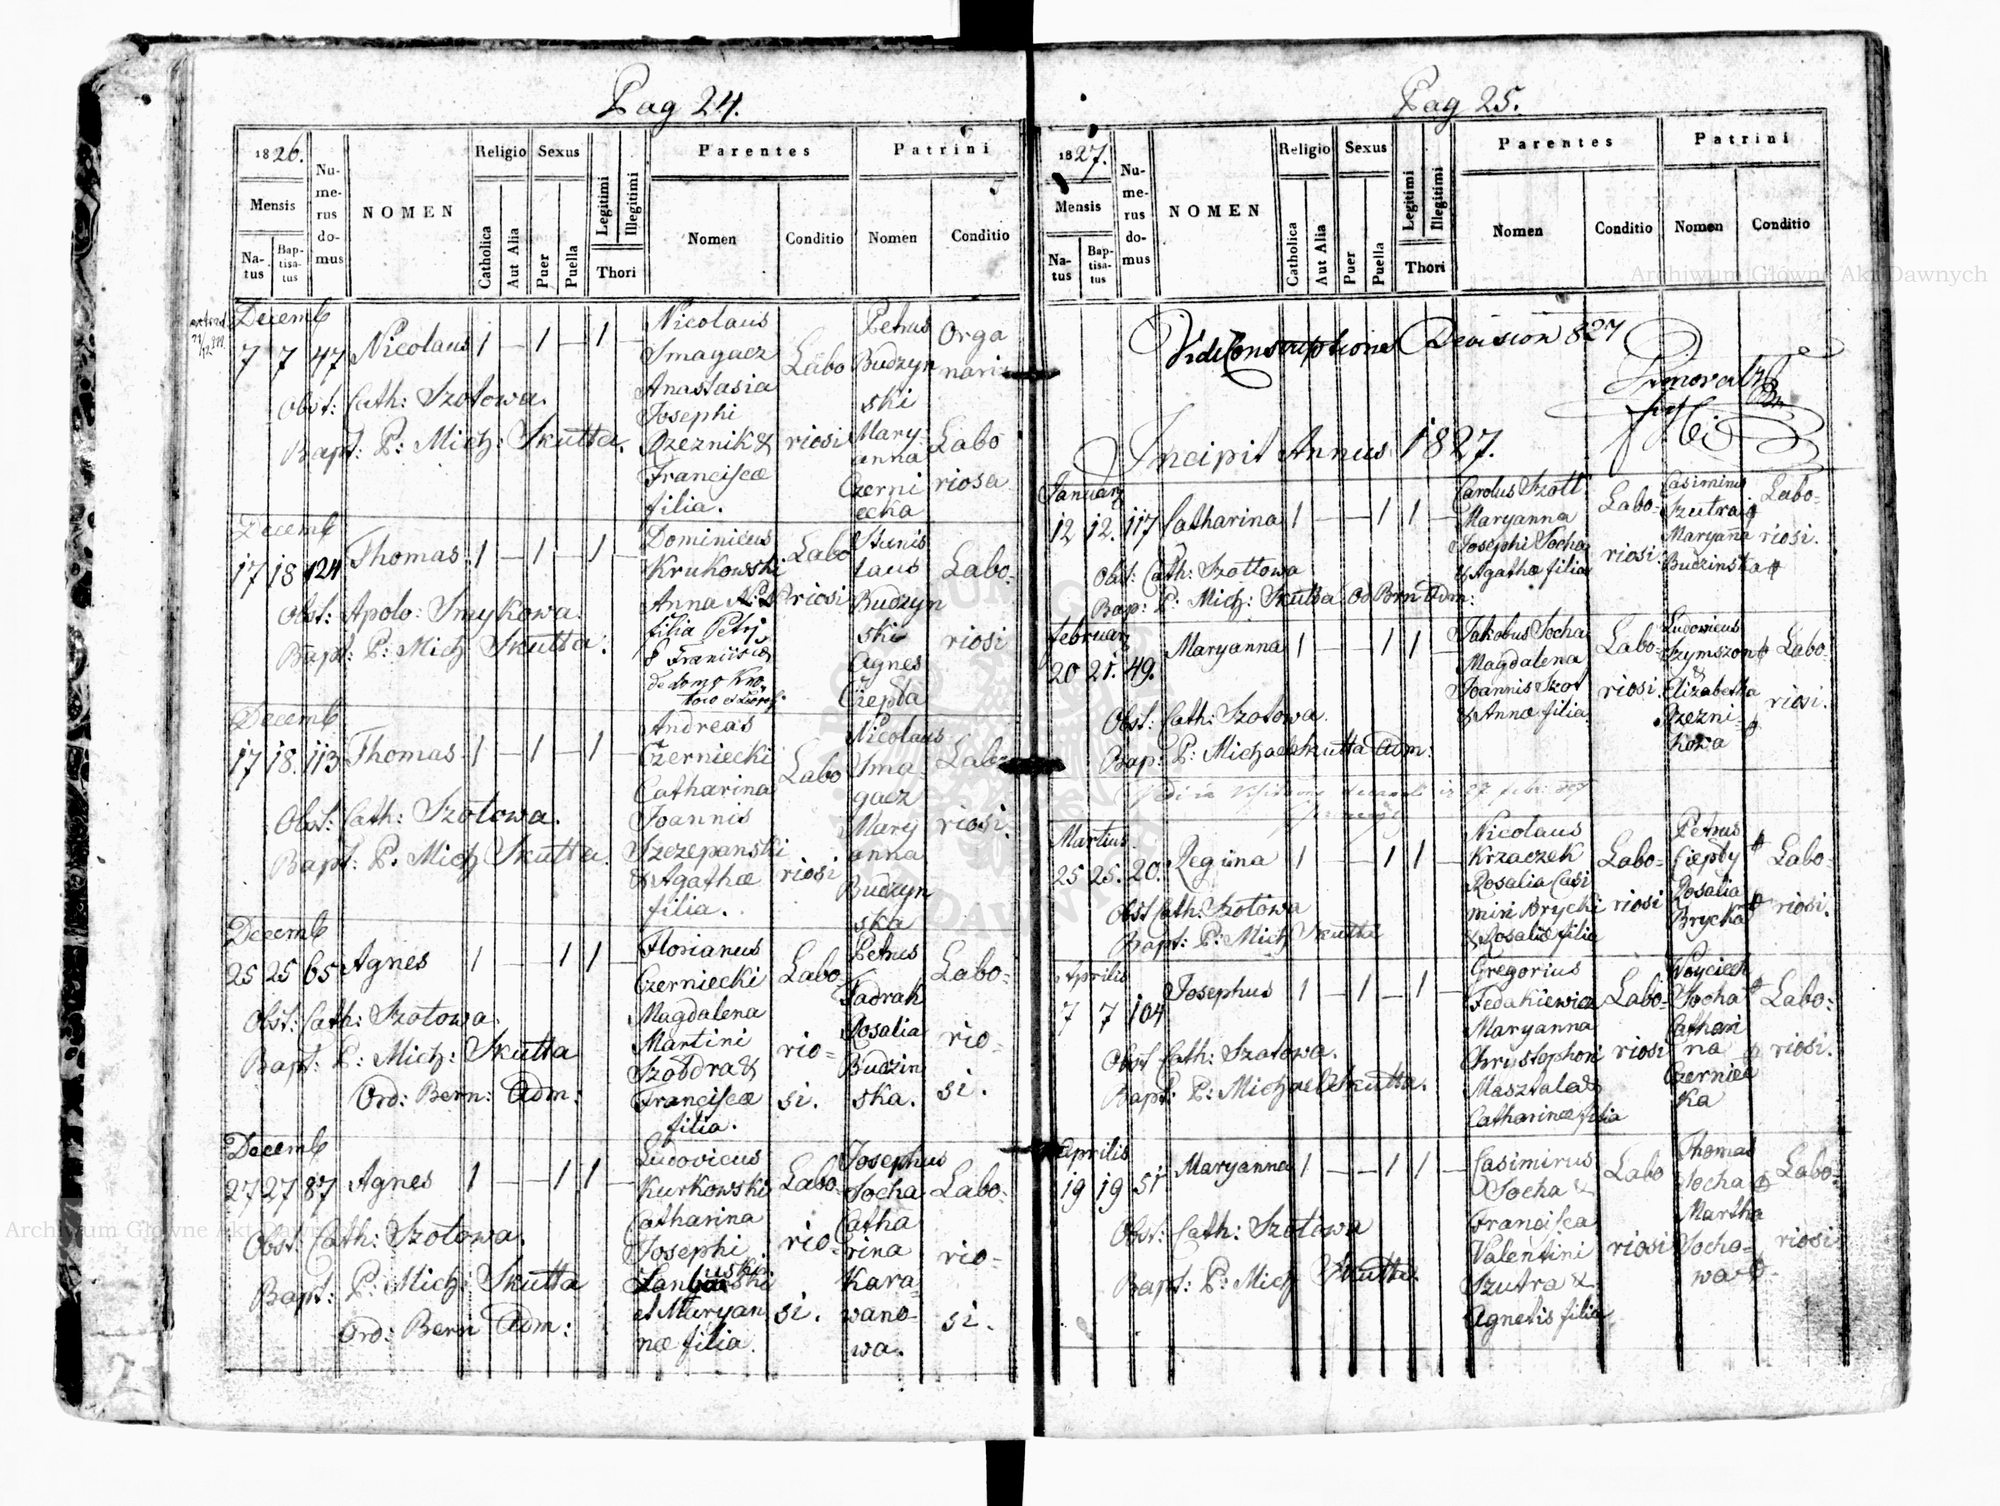 Pag 24.
1826.
Mensis
Natus
Baptisatus
Numerus domus
NOMEN
Religio
Catholica
Aut Alia
Sexus
Puer
Puella
Legitimi
Illegitimi
Thori
Parentes
Nomen
Conditio
Patrini
Nomen
Conditio
Decemb
7 7 47 Nicolaus 1 – 1 – 1 –
Obst: Cath: Szotowa.
Bapt: P: Mich: Skutta.
Nicolaus
Smagacz
Anastasia
Josephi
Rzeznik &
Franciscæ
filia.
Labo
riosi
Petrus
Budzyn
ski
Mary-
anna
Czerni
ecka
Orga
nari
Labo
riosa
Decemb
17 18 124 Thomas 1 – 1 – 1 –
Obst: Apolo: Smykowa.
Bapt: P: Mich Skutta.
Dominicus
Krukowski
Anna
filia Petri
Labo
riosi
Stanis
laus
Budzyn
ski
Agnes
Ciepła
Labo-
riosi
Decemb
17 18. 113 Thomas 1 – 1 – 1 –
Obst: Cath: Szotowa.
Bapt: P. Mich Skutta.
Andreas
Czerniecki
Catharina
Joannis
Szczepanski
& Agathæ
filia.
Labo
riosi
Nicolaus
Sma-
gacz
Mary
anna
Budzyn
ska
Labo
riosi.
Decemb
25 25 65 Agnes 1 – – 1 1
Obst: Cath: Szotowa.
Bapt: P: Mich: Skutta
Ord: Bern: Adm:
Florianus
Czerniecki
Magdalena
Martini
Szobdra &
Franciscæ
filia.
Labo-
rio-
si.
Petrus
Fadrah
Rosalia
Budzin
ska.
Labo-
rio-
si.
Decemb
27 27 87 Agnes 1 – – 1 1
Obst: Cath: Szotowa.
Bapt: P: Mich: Skutta
Ord: Bern Adm:
Ludovicus
Kurkowski
Catharina
Josephi
et Maryan
næ filia.
Labo-
rio-
si.
Josephus
Socha
Catha
rina
Kara-
wano-
wa.
Labo-
rio-
si.
Pag 25.
1827.
Mensis
Natus
Baptisatus
Numerus domus
NOMEN
Religio
Catholica
Aut Alia
Sexus
Puer
Puella
Legitimi
Illegitimi
Thori
Parentes
Nomen
Conditio
Patrini
Nomen
Conditio
Vidi Conscriptionis Revision 827
Incipit Annus 1827.
Januar
12 12. 117 Catharina 1 – – 1 1 –
Obst: Cath: Szottowa
Bap: P: Mich: Skutta Od Brn Adm:
Carolus Szott
Maryanna
Josephi Socha
& Agathæ filia
Labo-
riosi.
Casimirus
Szutra
Maryanna
Budzinska
Labo-
riosi.
Februar
20 21. 49. Maryanna 1 – – 1 1 –
Obst: Cath: Szotowa.
Bap: P: Michael Skutta Adm:
Jakobus Socha
Magdalena
Joannis Szot
& Annæ filia
Labo-
riosi.
Ludovicus
Szymszon
&
Elizabetha
Rzezni-
kowa
Labo-
riosi.
Martius
25 25. 20. Regina 1 – – 1 1 –
Obst Cath: Szotowa
Bapt: P: Mich Skutta
Nicolaus
Krzaczek
Rosalia Casi
miri Brycki
& Rosaliæ filia
Labo-
riosi
Petrus
Ciepły
Rosalia
Brycka
Labo-
riosi.
Aprilis
7 7 104 Josephus 1 – 1 – 1 –
Obst Cath: Szotowa.
Bapt: P: Michael Skutta.
Gregorius
Fedakiewicz
Maryanna
Christophori
Masztala &
Catharinæ filia
Labo-
riosi
Woyciech
Socha
Cathari
na
Czerniec
ka
Labo-
riosi.
Aprilis
19 19 51 Maryanna 1 – – 1 1 –
Obst: Cath: Szotowa
Bapt: P: Mich Skutta.
Casimirus
Socha &
Francisca
Valentini
Szutra &
Agnetis filia
Labo
riosi
Thomas
Socha
Martha
Socho-
wa
Labo-
riosi
Archiwum Główne Akt Dawnych
Archiwum Główne Akt Dawnych